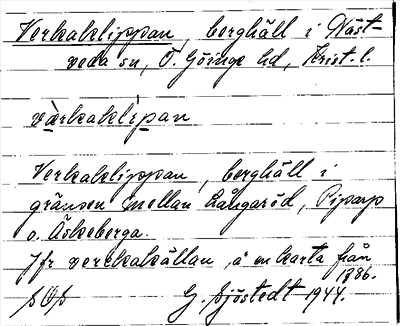 Verkaklippan, berghäll i Näst-
veda sn, Ö. Göinge hd, Krist. l.
värkaklìpan
Verkaklippan, berghäll i
gränsen mellan Långaröd, Piparp
o. Äskeberga.
Jfr verckakällan, å en karta från
1886.
G. Sjöstedt 1944.